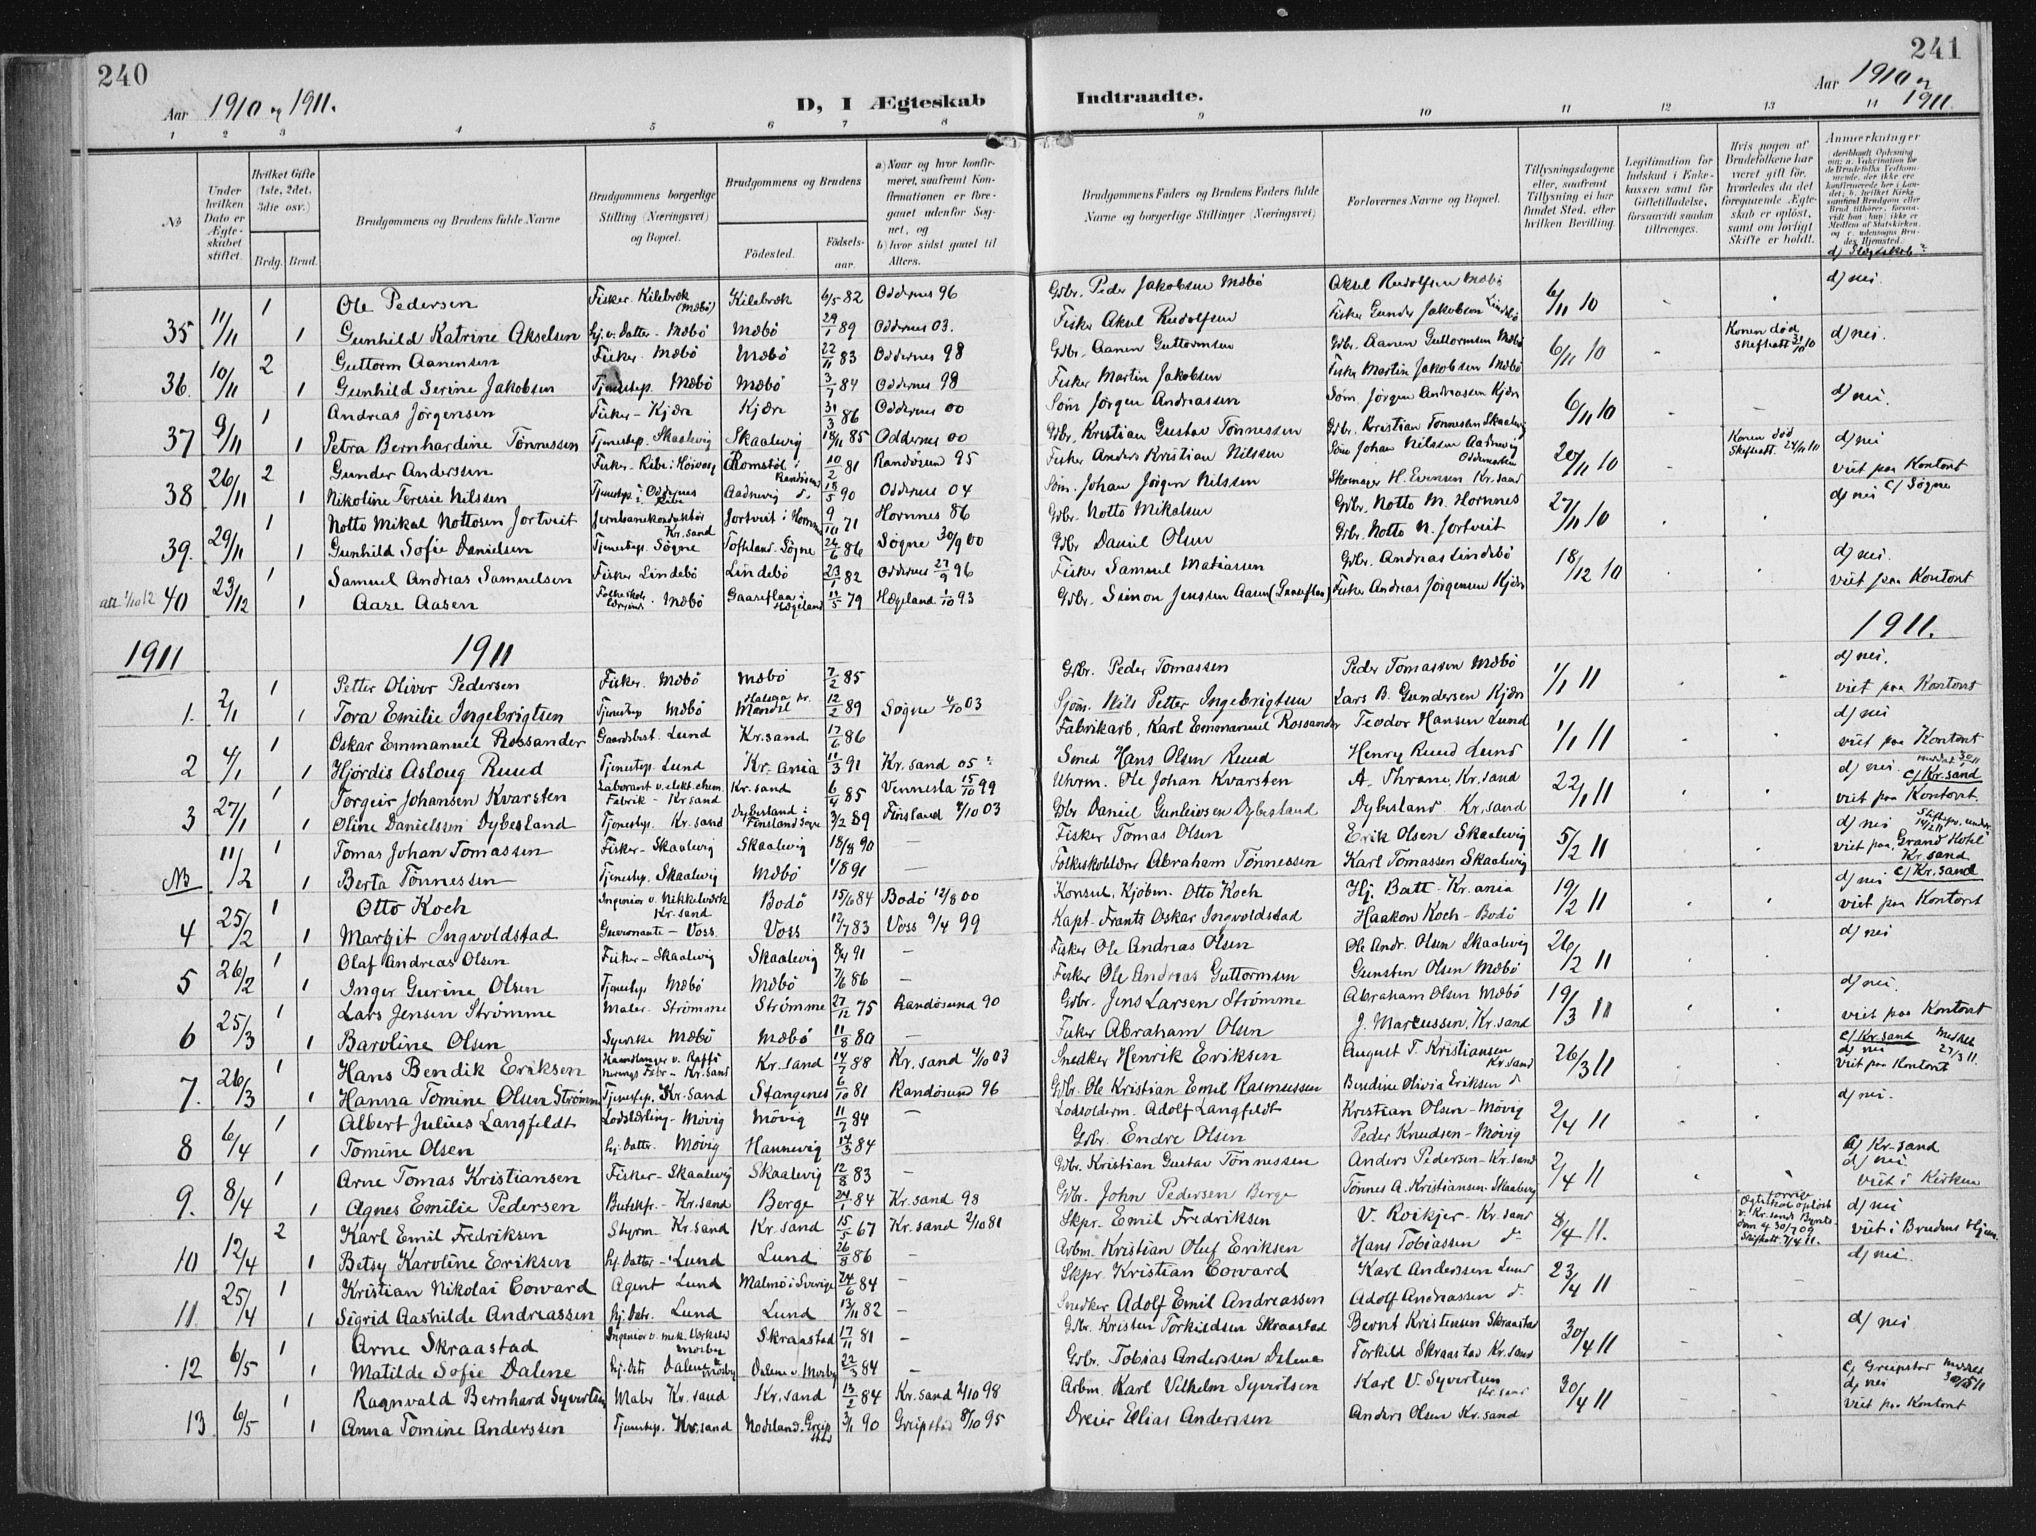 240
Aar 1910 og 1911.
D, I Ægteskab
Indtraadte.
Aar 1910 og 1911
241
1 2 3 4 5 6 7 8 9 10 11 12 13 14
No
Under hvilken Dato er Ægteskabet stiftet.
Hvilket Gifte (1ste, 2det, 3die osv.)
Brdg. Brud.
Brudgommens og Brudens fulde Navne
Brudgommens borgerlige Stilling (Næringsvei) og Bopæl.
Brudgommens og Brudens
Fødested.
Fødselsaar.
a) Naar og hvor konfirmeret, saafremt Konfirmationen er foregaaet udenfor Sognet, og
b) hvor sidst gaaet til Alters.
Brudgommens Faders og Brudens Faders fulde Navne og borgerlige Stillinger (Næringsvei)
Forlovernes Navne og Bopæl.
Tillysningsdagene eller, saafremt Tillysning ei har fundet Sted, efter hvilken Bevilling.
Legitimation for Indskud i Enkekassen samt for Giftetilladelse, forsaavidt saadan tiltrænges.
Hvis nogen af Brudefolkene har været gift før, hvorledes da det foregaaende Ægteskab er opløst, samt om lovligt Skifte er holdt.
Anmærkninger
d) Slægtskab?
35 11/11 1 Ole Pedersen Fisker. Kilebræk (Mæbø) Kilebræk 6/5 82 Oddernes 96 Gdbr. Peder Jakobsen Mæbø Aksel Rudolfsen Mæbø 6/11 10 d) nei.
1 Gunhild Katrine Akselsen Hj. v. Datter - Mæbø Mæbø 29/1 89 Oddernes 03. Fisker Aksel Rudolfsen Fisker Gunder Jakobsen Lindebø
36. 10/11 2 Guttorm Aanensen Fisker Mæbø Mæbø 22/11 83 Oddernes 98 Gdbr. Aanen Guttormsen Gdbr. Aanen Guttormsen Mæbø 6/11 10 Konen død Skifteatt. 31/10 10 d) nei.
1 Gunhild Serine Jakobsen Tjenestep. Mæbø Mæbø 3/7 84 Oddernes 98 Fisker Martin Jakobsen Fisker Martin Jakobsen Mæbø
37 9/11 1 Andreas Jørgensen Fisker - Kjær Kjær 31/3 86 Oddernes 00 Søm Jørgen Andreassen Søm. Jørgen Andreassen Kjær 6/11 10 d) nei.
1 Petra Bernhardine Tønnessen Tjenestep. Skaalevig Skaalevig 18/11 85 Oddernes 00 Gdbr. Kristian Gustav Tønnessen Gdbr. Kristian Tønnessen Skaalevig
38 26/11 2 Gunder Anderssen Fisker. Romstøl i Randøsund 10/2 81 Randøsund 95 Fisker Anders Kristian Nilssen Søm Johan Nilssen Aadnevig Oddernes 20/11 10 Konen død Skifteatt. 24/11 10 d) nei
1 Nikoline Teresie Nilssen Tjenestep. i Oddernes Aadnevig 18/5 90 Oddernes 04 Søm. Johan Jørgen Nilssen Skomager H. Evensen Kr.sand viet paa Kontoret
39. 29/11 1 Notto Mikal Nottosen Jortveit Jernbanekonduktør Kr.sand Jortveit i Hornnes 9/10 71 Hornnes 86 Gdbr. Notto Mikalsen Gdbr. Notto M. Hornnes 27/11 10 d) nei c/ Søgne
1 Gunhild Sofie Danielsen Tjenestep. Søgne Toftland. Søgne 24/6 86 Søgne 30/9 00 Gdbr Daniel Olsen Gdbr. Notto N. Jortveit
att 1/10 12 40 23/12 1 Samuel Andreas Samuelsen Fisker Lindebø Lindebø 23/1 82 Oddernes 27/9 96 Fisker Samuel Matiassen Gdbr. Andreas Lindebø 18/12 10 d) nei.
1 Aase Aasen Mæbø Gaaseflaa i Hægeland 11/5 79 Hægeland 1/10 93 Gdbr. Simon Jenssen Aasen (Gaaseflaa) Fisker Andreas Jørgensen Kjær viet paa Kontoret
1911 1911 1911.
1. 2/1 1 Petter Oliver Pedersen Fisker. Mæbø Mæbø 7/2 85 Gdbr. Peder Tomassen Peder Tomassen Mæbø 1/1 11 d) nei.
1 Tora Emilie Ingebrigtsen Tjenestep Mæbø Halsaa pr. Mandal 12/2 89 Søgne 4/10 03 Sjøm. Nils Petter Ingebrigtsen Lars B. Gundersen Kjær viet paa Kontoret
2 4/1 1 Oskar Emmanuel Rossander Gaardsbest. Lund Kr.sand 17/6 86 Fabrikarb. Karl Emmanuel Rossander Teodor Hansen Lund 1/1 11 d) nei
1 Hjørdis Asloug Ruud Tjenestep. Lund Kr-ania 11/3 91 Kr. sand 05? Smed Hans Olsen Ruud Henry Ruud Lund viet paa Kontoret
3 27/1 1 Torgeir Johansen Kvarsten Laborant v. elekt. chem. Fabrik - Kr sand Kr. sand 6/4 85 Vennesla 15/10 99 Uhrm. Ole Johan Kvarsten A. Thrane, Kr. sand 22/1 11 d) nei. c/ Kr. sand
1 Oline Danielssen Dybesland Tjenestep. Kr. sand Dybesland i Finsland Sogn 3/2 89 Finsland 4/10 03 Gdbr Daniel Gunleivsen Dybesland Dybesland. Kr. sand viet paa Kontoret.
NB 11/2 1 Tomas Johan Tomassen Fisker - Skaalevig Skaalevig 18/8 90 — Fisker Tomas Olsen Erik Olsen Skaalevig 5/2 11 d) nei
1 Berta Tønnessen Tjenestep. Skaalevig Mæbø 1/8 91 — Folkeskolelærer Abraham Tønnessen Karl Tomassen Skaalevig viet paa Grand Hotel Kr.sand
4 25/2 1 Otto Koch Ingeniør v. Nikkelværk Kr.sand Bodø 15/6 84 Bodø 12/8 00 Konsul, Kjøbm. Otto Koch Hj. Batt - Kr. ania 19/2 11 d) nei c/ Kr. sand
1 Margit Ingvoldstad Guvernante - Voss Voss 12/7 83 Voss 9/4 99 Kapt. Frants Oskar Ingvoldstad Haakon Koch - Bodø viet paa Kontoret
5 26/2 1 Olaf Andreas Olsen Fisker - Skaalevig Skaalevig 8/4 91 Fisker Ole Andreas Olsen Ole Andr. Olsen Skaalevig 26/2 11 d) nei
1 Inger Gurine Olsen Tjenestep Mæbø Mæbø 7/6 86 — Fisker Ole Andreas Guttormsen Gunsten Olsen Mæbø
6 25/3 1 Lars Jensen Strømme Maler. Strømme Strømme 27/12 75 Randøsund 90 Gdbr. Jens Larsen Strømme Abraham Olsen Mæbø 19/3 11 d) nei.
1 Baroline Olsen Syerske Mæbø Mæbø 11/8 80 — Fisker Abraham Olsen J. Marcussen, Kr. sand viet paa Kontoret
7. 26/3 1 Hans Bendik Eriksen Kr. sand Kr. sand 14/7 88 Kr. sand 4/10 03 Snedker Henrik Eriksen August T. Kristiansen Kr sand 26/3 11 c/ Kr. sand d) nei
1 Hanna Tomine Olsen Strømme Tjenestep. Kr. Sand Stangenes 6/10 81 Randøsund 96 Gdbr. Ole Kristian Emil Rasmussen Bendine Olivia Eriksen viet paa Kontoret
8 6/4 1 Albert Julius Langfeldt Lodslærling - Møvig Møvig 11/7 84 — Lodsolderm. Adolf Langfeldt Kristian Olsen - Møvig 2/4 11 d) nei.
1 Tomine Olsen Hj. Datter. Møvig Hannevig 14/3 84 Gdbr. Endre Olsen Peder Knudsen - Møvig
9. 8/4 1 Arne Tomas Kristiansen Fisker - Skaalevig Skaalevig 12/8 83 — Gdbr. Kristian Gustav Tønnessen Anders Pedersen - Kr. sand 2/4 11 c/ Kr-sand d) nei.
1 Agnes Emilie Pedersen Butikfr. - Kr.sand Berge 24/1 84 Kr. sand 98 Gdbr. John Pedersen Berge Tønnes A. Kristiansen. Skaalevig viet i Kirken
10 12/4 2 Karl Emil Fredriksen Styrm - Kr.sand Kr. sand 15/5 67 Kr. sand 2/10 81 Skpr. Emil Fredriksen V. Roikjer - Kr. sand 8/4 11. d) nei
1 Betsy Karoline Eriksen Hj. Datter - Lund Lund 26/8 86 — Arbm. Kristian Oluf Eriksen Hans Tobiassen viet i Brudens Hjem
11 25/4 1 Kristian Nikolai Coward Agent Lund Malmø i Sverige 24/6 84 — Skpr. Kristian Coward Karl Anderssen Lund 23/4 11 d) nei
1 Sigrid Aashilde Andreassen Hj. Datr. Lund Lund 13/11 82 — Snedker Adolf Emil Andreassen Adolf Andreassen
12 6/5 1 Arne Skraastad Ingeniør v. mek. Værksted Mosby Skraastad 17/11 81 — Gdbr. Kristen Torkildsen Skraastad Bernt Kristensen Skraastad 30/4 11 d) nei
1 Matilde Sofie Dalene Hj. Datr Dalene v. Mosby Dalene v. Mosby 22/3 84 — Gdbr. Tobias Anderssen Dalene Torkild Skraastad Kr. sand
13 6/5 1 Ragnvald Bernhard Syvertsen Maler Kr. sand Kr. sand 13/2 84 Kr. sand 2/10 98 Arbm. Karl Vilhelm Syvertsen Karl V. Syvertsen Kr. sand 30/4 11 c/ Greipstad d) nei
1 Anna Tomine Anderssen Tjenestep. Kr. sand Nodeland. Greipstad 3/1 90 Greipstad 8/10 95 Dreier Elias Anderssen Anders Olsen Kr. sand viet paa Kontoret